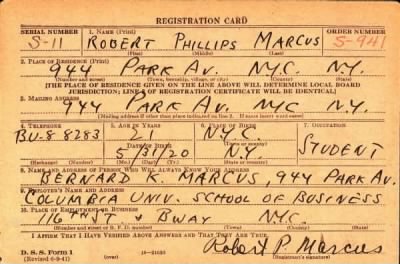 REGISTRATION CARD
SERIAL NUMBER 1. NAME (Print) ORDER NUMBER
S-11 ROBERT PHILLIPS MARCUS S-941
(First) (Middle) (Last)
2. PLACE OF RESIDENCE (Print)
944 PARK AV. NYC. N.Y.
(Number and street) (Town, township, village, or city) (County) (State)
[THE PLACE OF RESIDENCE GIVEN ON THE LINE ABOVE WILL DETERMINE LOCAL BOARD
JURISDICTION; LINE 2 OF REGISTRATION CERTIFICATE WILL BE IDENTICAL]
3. MAILING ADDRESS
944 PARK AV. NYC N.Y.
4. TELEPHONE 5. AGE IN YEARS 6. PLACE OF BIRTH 7. OCCUPATION
BU-8 8283 21 N.Y.C.
DATE OF BIRTH STUDENT
5/31/20 N.Y.
(Exchange) (Number) (Mo.) (Day) (Yr.) (State or country)
8. NAME AND ADDRESS OF PERSON WHO WILL ALWAYS KNOW YOUR ADDRESS
BERNARD K. MARCUS, 944 PARK AV.
9. EMPLOYER'S NAME AND ADDRESS
COLUMBIA UNIV. SCHOOL OF BUSINESS
10. PLACE OF EMPLOYMENT OR BUSINESS
116TH ST & BWAY N.Y.C.
(Number and street or R. F. D. number) (Town) (County) (State)
I AFFIRM THAT I HAVE VERIFIED ABOVE ANSWERS AND THAT THEY ARE TRUE.
Robert P. Marcus
D. S. S. Form 1
(Revised 6-9-41) (Registrant's signature)